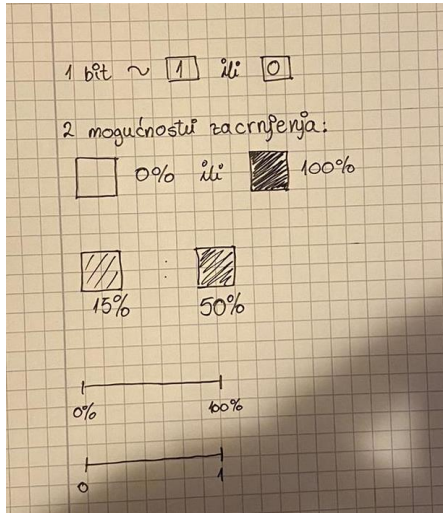 1 bit ~ 1 ili 0
2 mogućnosti zacrnjenja:
0% ili 100%
15% : 50%
0% 100%
0 1